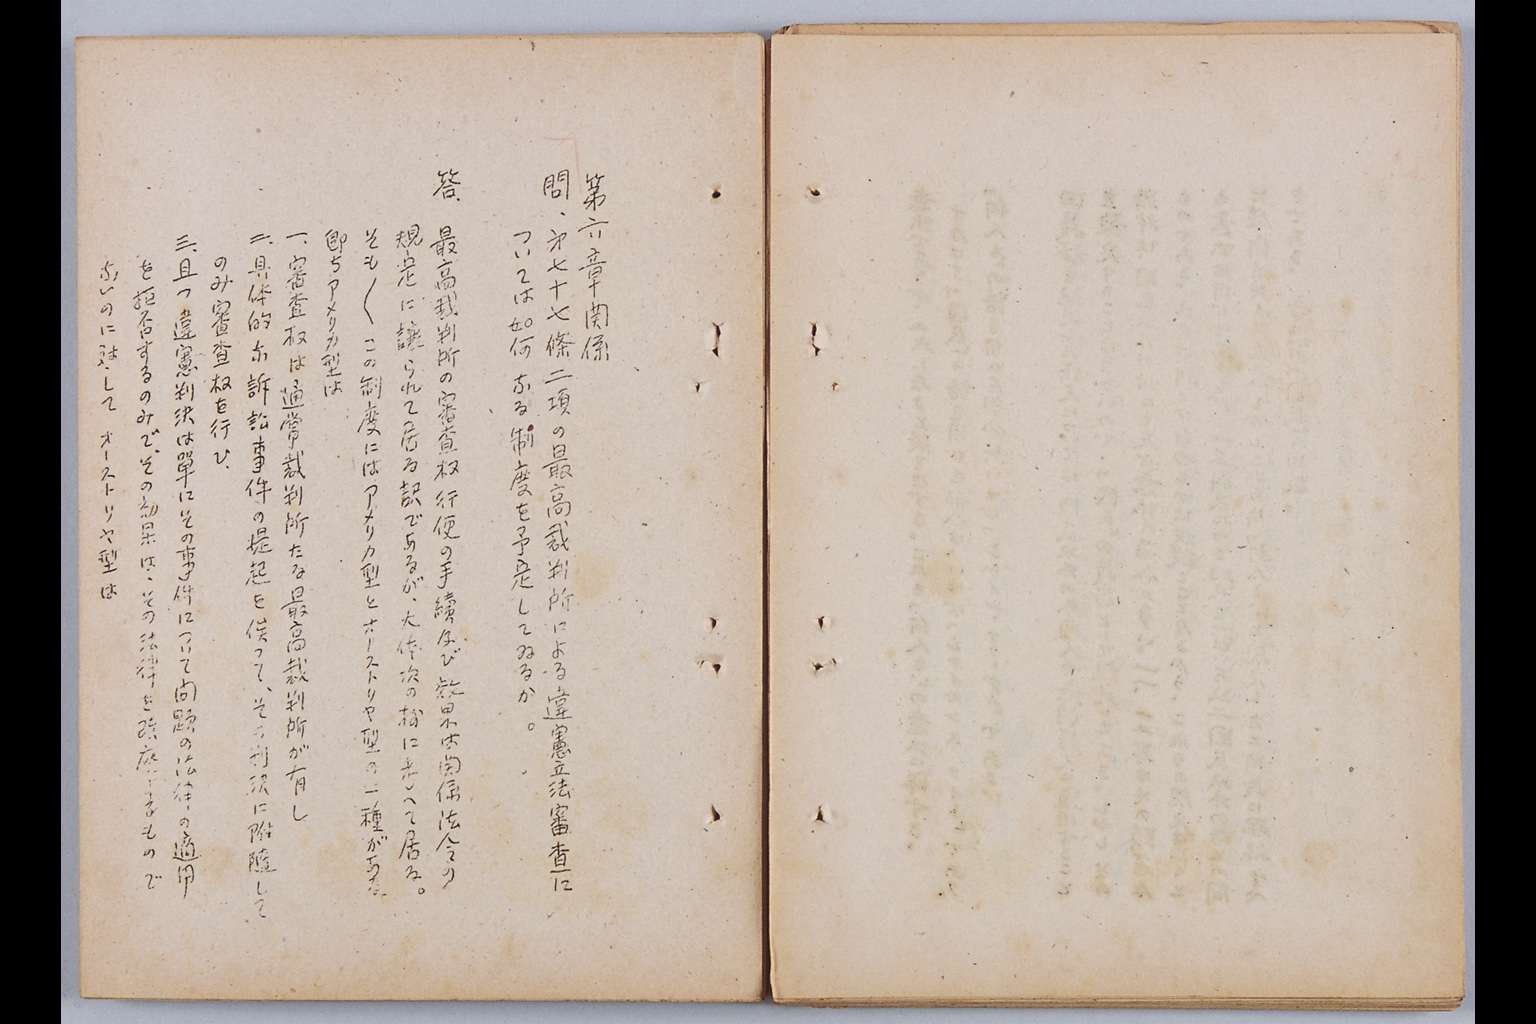 第六章関係
問、第七十七條二項の最高裁判所による違憲立法審査に
ついては如何なる制度を予定してゐるか。
答、最高裁判所の審査权行使の手續及び効果は関係法令の
規定に譲られて居る訳であるが、大体次の様に考へて居る。
そも〱この制度にはアメリカ型とオーストリヤ型の二種がある
即ちアメリカ型は
一、審査权は通常裁判所たる最高裁判所が有し
二、具体的な訴訟事件の提起を俟つて、その判決に附随して
のみ審査权を行ひ、
三、且つ違憲判決は單にその事件について問題の法律の適用
を拒否するのみで、その効果は、その法律を改廃するもので
ないのに対して オーストリヤ型は